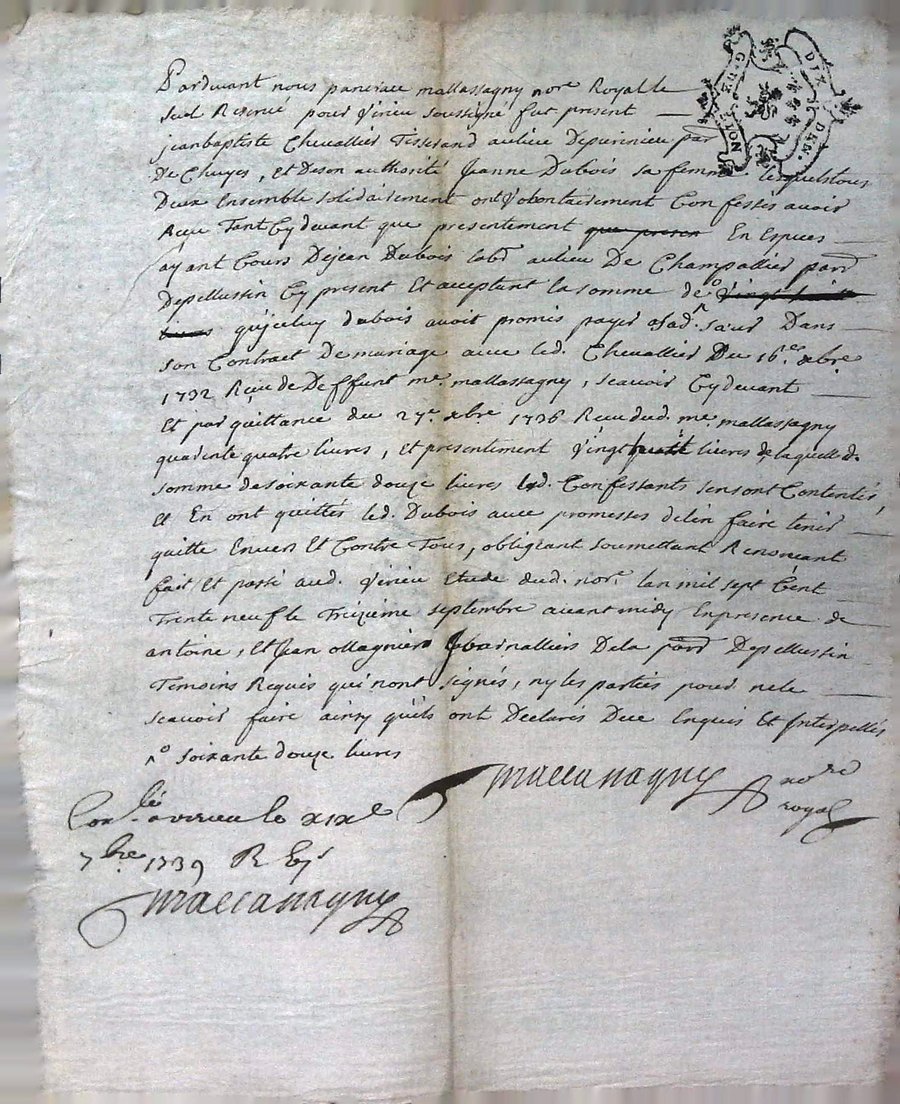 Pardevant nous pancrace mallassagny nore. Royal le
sud Reservé pour Virieu soussigné fut present
jeanbaptiste Chevallier Tisserand au lieu De parr
De Chuyes, et De son authorité Jeanne Dubois sa femme lesquels tous
Deux Ensemble solidairement ont Volontairement Confessés avoir
Receu Tant Cydevant que presentement que presen En Especes
ayant Cours De jean Dubois labr. au lieu De Champallier parr.
De pellussin Cy present Et acceptant la somme de
qu'iceluy dubois avoit promis payer a sad. sœur Dans
son Contract De mariage avec led. Chevallier Du 16e. xbre.
1732 Receu de Deffunt me. mallassagny, scavoir Cydevant
Et par quittance du 27e. xbre. 1736 Receu dud. me. mallassagny
quarente quatre livres, Et presentement Vingt huit livres de laquelled.
somme de soixante douze livres lesd. Confessants sen sont Contentés
Et En ont quittés led. Dubois avec promesses de len faire tenir
quitte Envers Et Contre Tous, obligeant soumettant Renonceant
fait Et passé aud. Virieu Etude dud. nore. lan mil sept Cent
Trente neuf le Treizieme septembre avant midy En presence de
antoine, Et Jean ollagniers Journalliers De la parr. De pellussin
Temoins Requis qui n'ont signés, ny les parties pour ne le
scavoir faire ainsy qu'ils ont Declarés Deue Enquis Et Interpellés
o soixante douze livres
Mallassagny nore.
royal
Conlé. a virieu le xixe
7bre. 1739 R
Mallassagny
G. DE
NOTE
DIX
DEN.